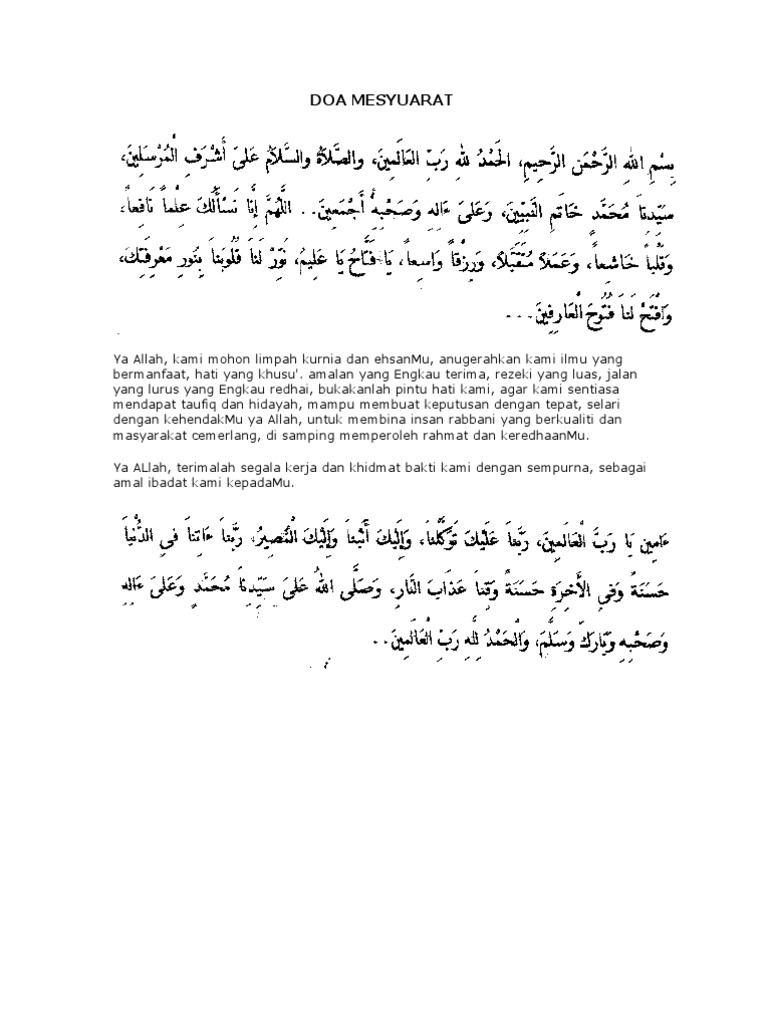 DOA MESYUARAT
بِسْمِ اللهِ الرَّحْمَنِ الرَّحِيمِ، الحَمْدُ للهِ رَبِّ العَالَمِينَ، والصَّلاَةُ والسَّلاَمُ عَلىَ أَشْرَفِ الْمُرْسَلِينَ،
سَيِّدِناَ مُحَمَّدٍ خَاتَمِ النَّبِيِّينَ، وَعَلىَ ءَالِهِ وَصَحْبِهِ أَجْمَعِينَ.. اللَّهُمَّ إِنَّا نَسْأَلُكَ عِلْماً نَافِعاً،
وَقَلْباً خَاشِعاً، وَعَمَلاً مُتَقَبَّلاً، وَرِزْقاً وَاسِعاً، يَا فَتَّاحُ يَا عَلِيمُ، نَوِّرْ لَناَ قُلُوبَناَ بِنُورِ مَعْرِفَتِكَ،
وَافْتَحْ لَناَ فُتُوحَ الْعَارِفِينَ...
Ya Allah, kami mohon limpah kurnia dan ehsanMu, anugerahkan kami ilmu yang
bermanfaat, hati yang khusu'. amalan yang Engkau terima, rezeki yang luas, jalan
yang lurus yang Engkau redhai, bukakanlah pintu hati kami, agar kami sentiasa
mendapat taufiq dan hidayah, mampu membuat keputusan dengan tepat, selari
dengan kehendakMu ya Allah, untuk membina insan rabbani yang berkualiti dan
masyarakat cemerlang, di samping memperoleh rahmat dan keredhaanMu.
Ya ALlah, terimalah segala kerja dan khidmat bakti kami dengan sempurna, sebagai
amal ibadat kami kepadaMu.
ءَامِين يَا رَبَّ الْعَالَمِينَ، رَبَّناَ عَلَيْكَ تَوَكَّلْناَ، وَإِلَيْكَ أَنَبْناَ وَإِلَيْكَ الْمَصِيرُ، رَبَّناَ ءَاتِناَ فىِ الدُّنْياَ
حَسَنَةً وَفىِ الأَخِرَةِ حَسَنَةً وَقِناَ عَذَابَ النَّارِ، وَصَلَّى اللهُ عَلىَ سَيِّدِناَ مُحَمَّدٍ وَعَلىَ ءَالِهِ
وَصَحْبِهِ وَبَارَكَ وَسَلَّمَ، وَالْحَمْدُ لِلَّهِ رَبِّ الْعَالَمِينَ..